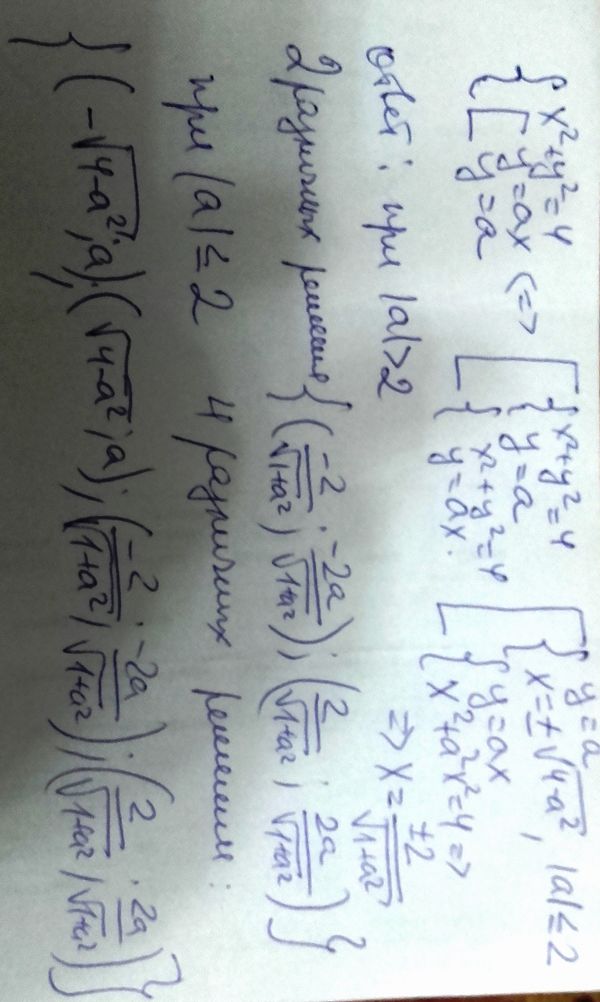 { x²+y²=4 [ y=ax y=a <=> [ { x²+y²=4 y=a { x²+y²=4 y=ax. [ { y=a x=±√4-a², |a|≤2 { y=ax x²+a²x²=4 =>
=> x= ±2/√1+a²
ответ: при |a|>2
2 различных решения { (-2/√1+a²; -2a/√1+a²); (2/√1+a²; 2a/√1+a²) }
при |a|≤2 4 различных решения:
{ (-√4-a²; a); (√4-a²; a); (-2/√1+a²; -2a/√1+a²); (2/√1+a²; 2a/√1+a²) }